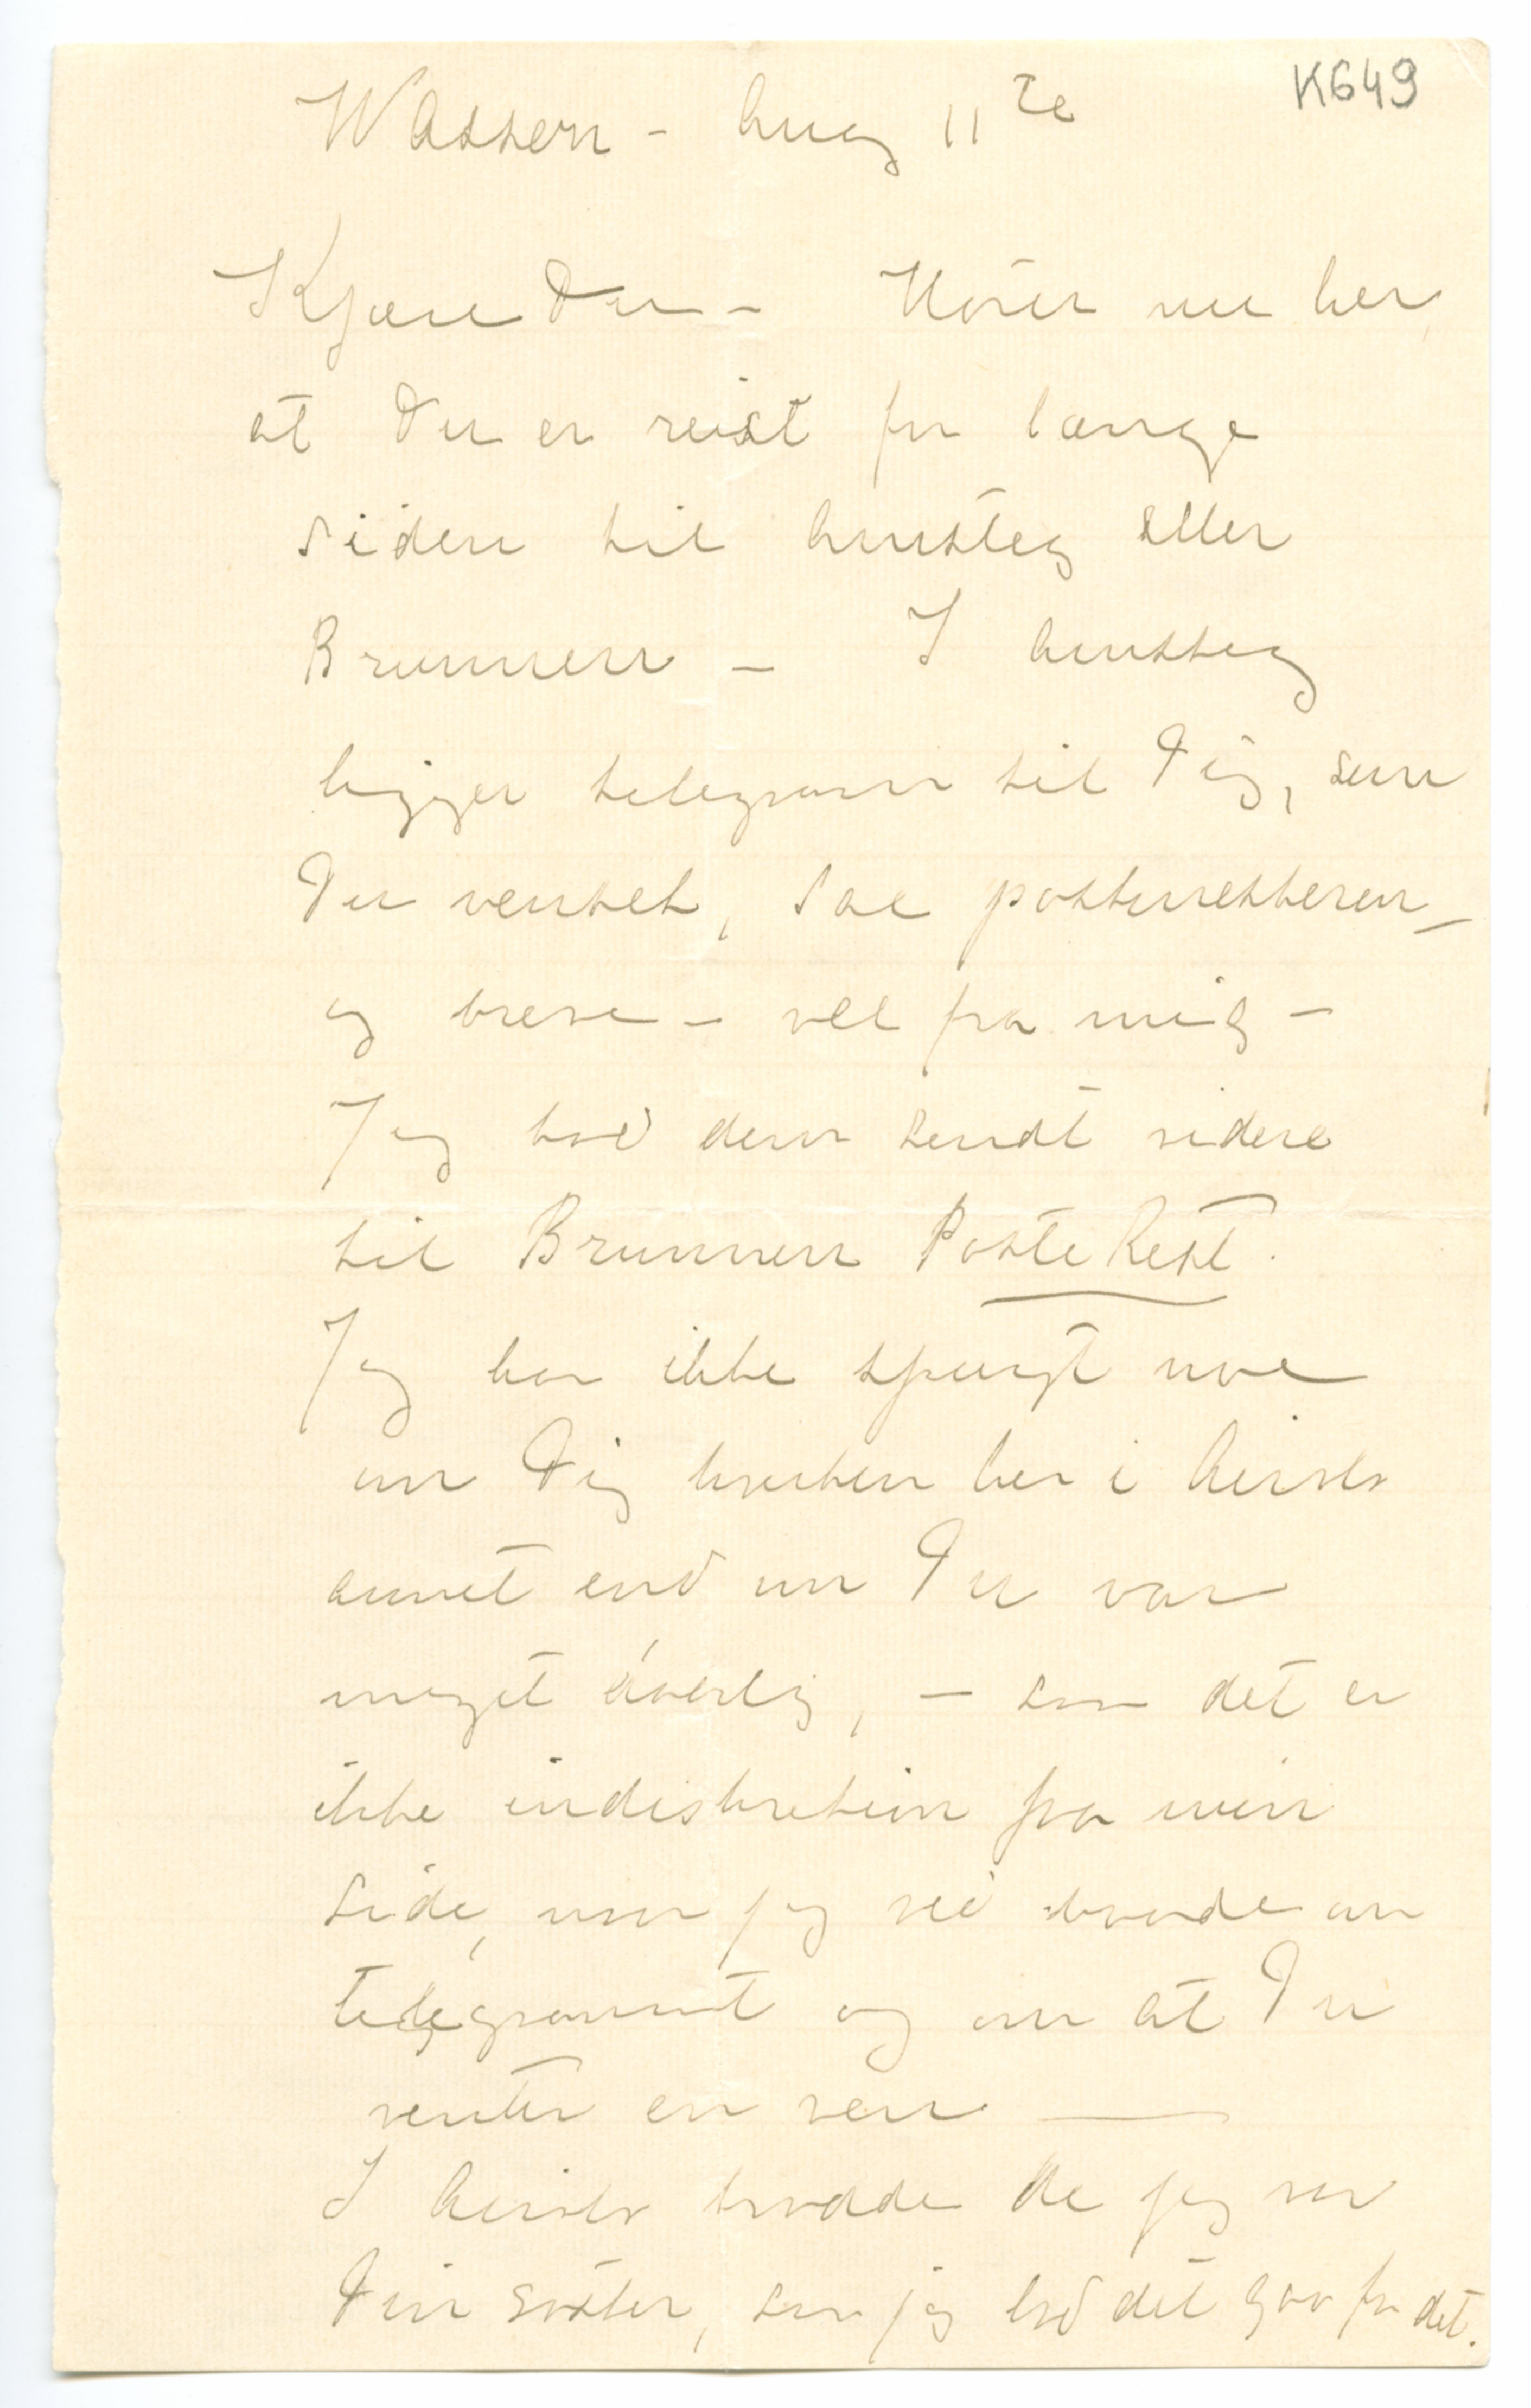 K649
Wassen – Aug 11te
Kjære Du – Hører nu her,
at Du er reist for længe
siden til Amsteg eller
Brunnen – I Amsteg
ligger telegram til Dig, som
Du ventet, sae postmesteren –
og breve – vel fra mig –
Jeg bad dem sendt videre
til Brunnen Poste Rest.
Jeg har ikke spurgt noe
om Dig hverken her i Airolo
annet end om Du var
meget dårlig, – saa det er
ikke indiskretion fra min
side, naar jeg ved baade om
telegrammet og om at Du
venter en ven —
I Airolo trodde de jeg var
Din søster, saa jeg lod det gaa for det.